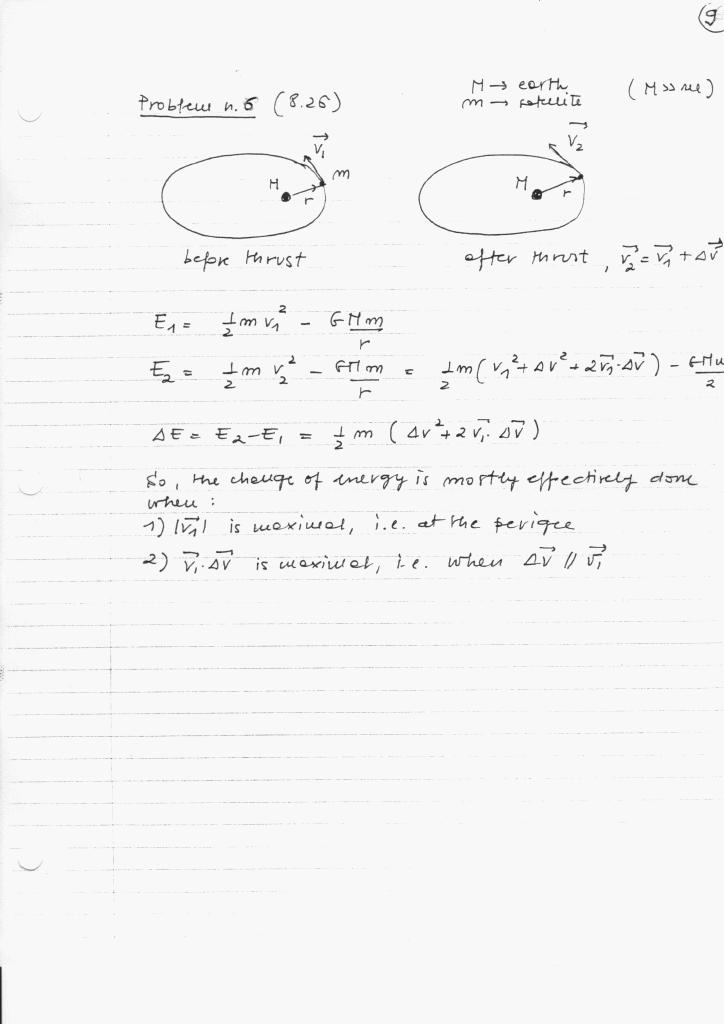 9
Problem n. 6 (8.26)
M → earth (M >> m)
m → satellite
v⃗₁ m M r
v⃗₂ M r
before thrust
after thrust, v⃗₂ = v⃗₁ + Δv⃗
E₁ = ½ m v₁² - GMm/r
E₂ = ½ m v₂² - GMm/r = ½ m (v₁² + Δv² + 2v⃗₁·Δv⃗) -
ΔE = E₂ - E₁ = ½ m (Δv² + 2v⃗₁·Δv⃗)
So, the change of energy is mostly effectively done
when :
1) |v⃗₁| is maximal, i.e. at the perigee
2) v⃗₁·Δv⃗ is maximal, i.e. when Δv⃗ // v⃗₁